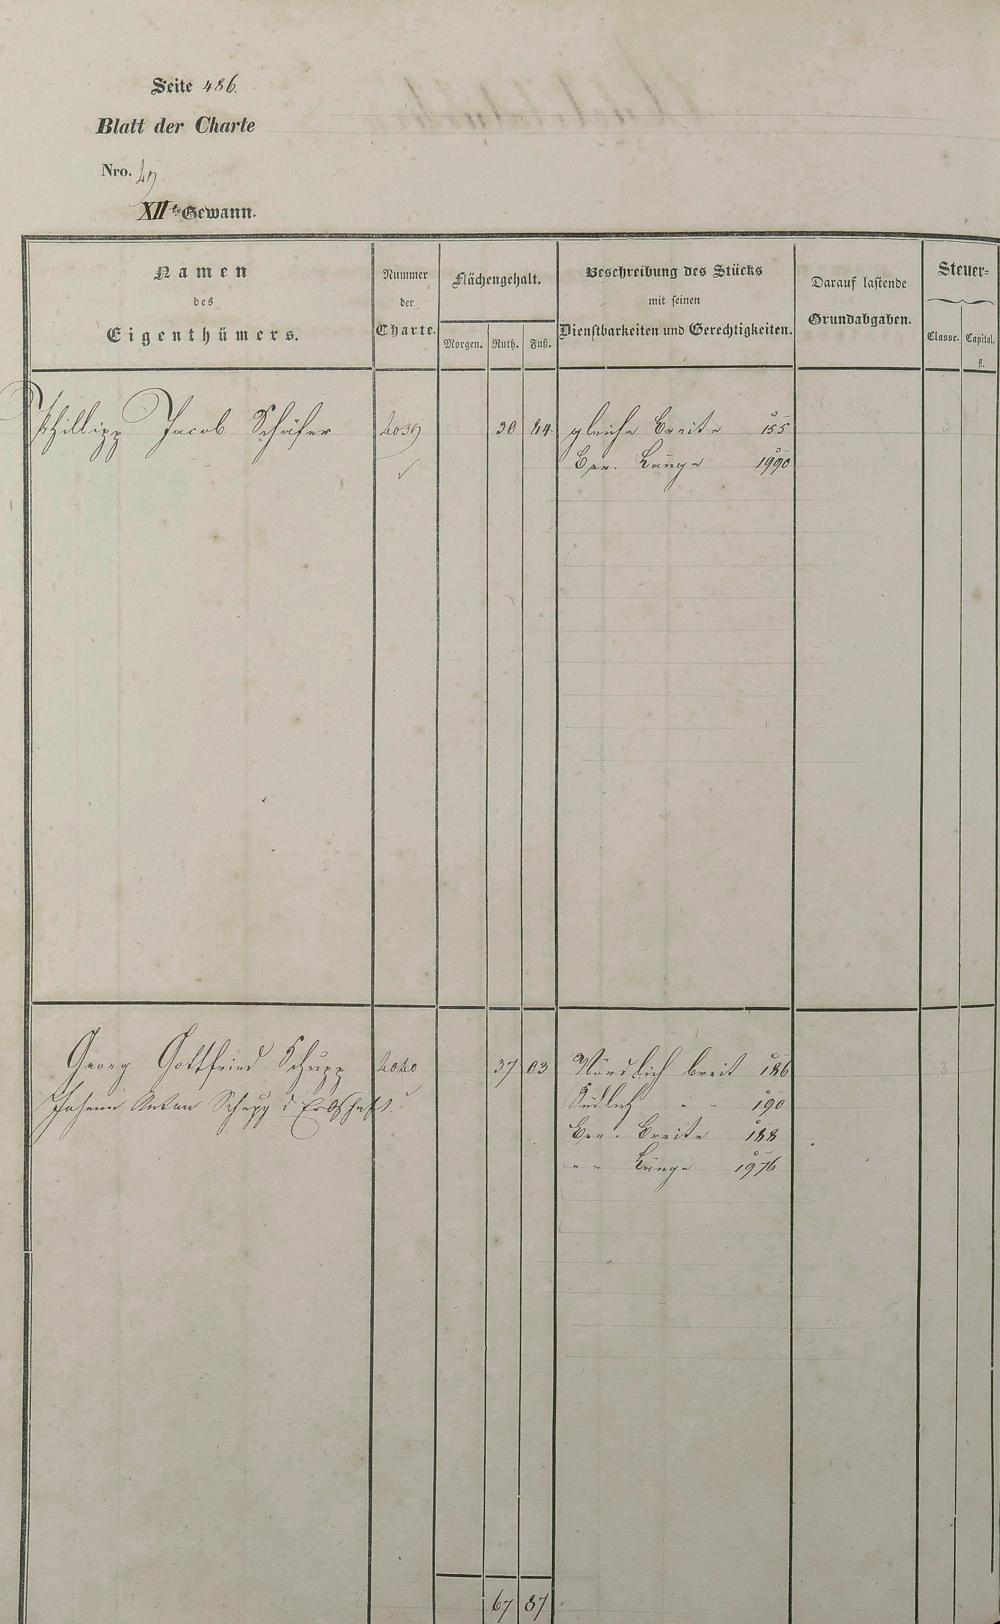 Seite 486.
Blatt der Charte
Nro. 49.
XIIte Gewann.
Namen
des
Eigenthümers.
Nummer
der
Charte.
Flächengehalt.
Morgen. Ruth. Fuß.
Beschreibung des Stücks
mit seinen
Dienstbarkeiten und Gerechtigkeiten.
Darauf lastende
Grundabgaben.
Steuer-
Classe. Capital.
fl.
Phillipp Jacob Schäfer 4039 30 84 gleiche Breite 155
Ber. Länge 1990
Georg Gottfried Schupp 4040 37 03 Nördlich breit 186
Johann Anton Schupp's Erbschaft Südlich " - 190
Ber. Breite 188
" " Länge 1970
67 87